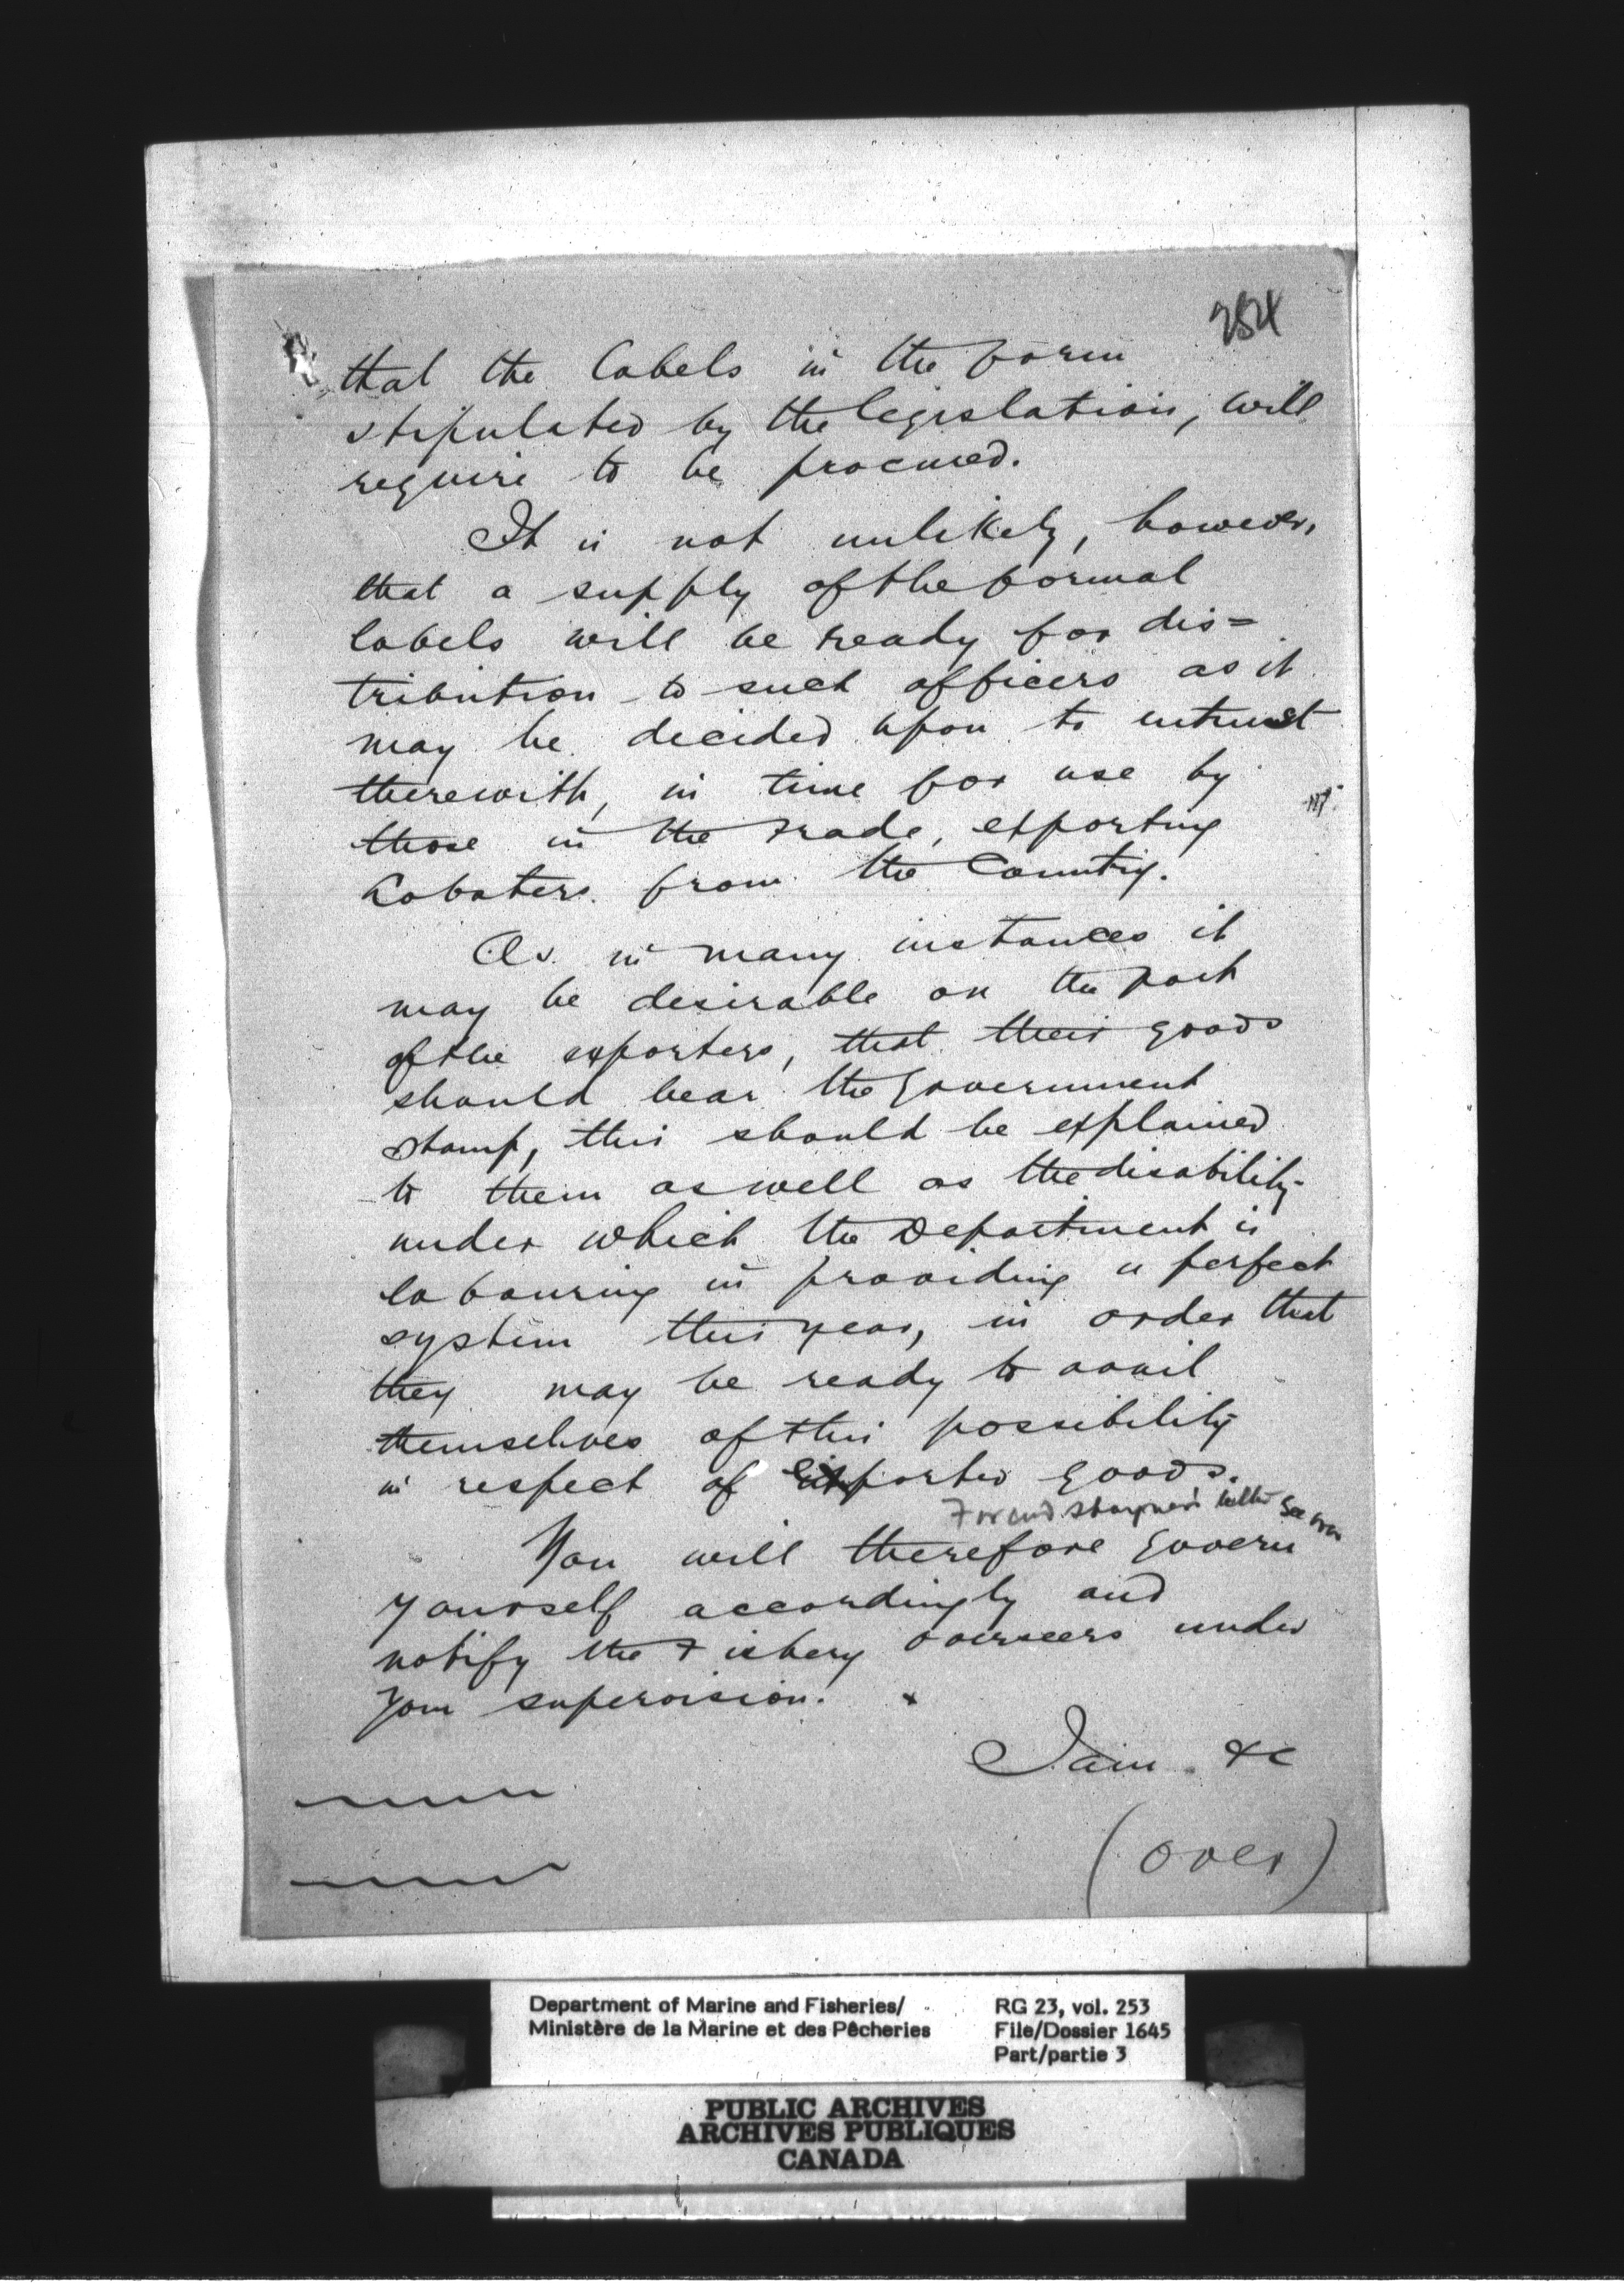 254
that the labels in the form
stipulated by the legislation, will
require to be procured.
It is not unlikely, however,
that a supply of the formal
labels will be ready for dis=
tribution to such officers as it
may be decided upon to entrust
therewith, in time for use by
those in the trade, exporting
Lobsters from the Country.
As in many instances it
may be desirable on the part
of the exporters, that their goods
should bear the Government
stamp, this should be explained
to them as well as the disability
under which the Department is
labouring in providing a perfect
system this year, in order that
they may be ready to avail
themselves of this possibility
in respect of exported goods.
For letter see over
You will therefore govern
yourself accordingly and
notify the Fishery Overseers under
your supervision. x
I am &c
(over)
Department of Marine and Fisheries/
Ministère de la Marine et des Pêcheries
RG 23, vol. 253
File/Dossier 1645
Part/partie 3
PUBLIC ARCHIVES
ARCHIVES PUBLIQUES
CANADA